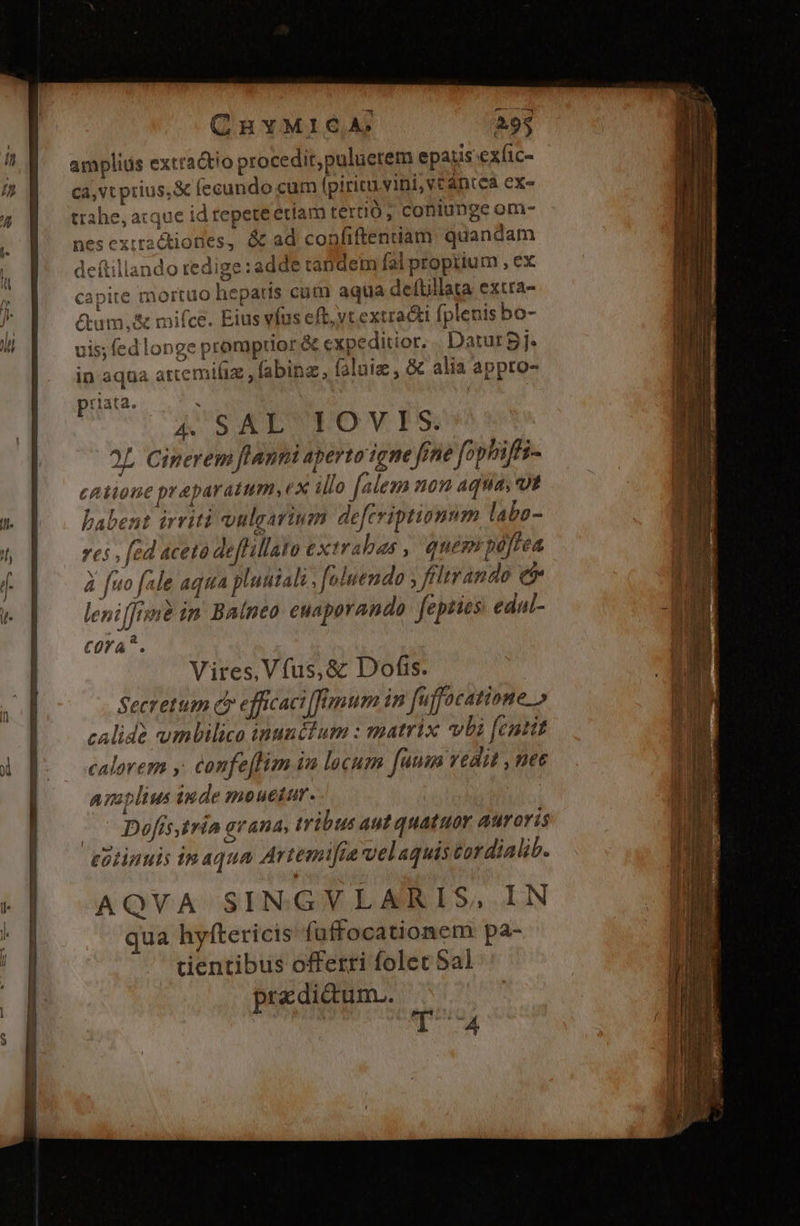 CHYMICA, 295
ampliùs extractio procedit, puluerem epatis exſic-
ca, vt prius, & ſecundo cum ſpiritu vini, vt anteà ex-
trahe, atque id repete etiam tertiò; coniunge om-
nes extractiones, & ad conſiſtentiam quandam
deſtillando redige: adde tandem ſal proprium, ex
capite mortuo hepatis cum aqua deſtillata extra-
ctum, & miſce. Eius vſus eſt, vt extracti ſplenis bo-
uis; ſed longe promptior & expeditior. Datur ℈j.
in aqua artemiſiæ, ſabinæ, ſaluiæ, & alia appro-
priata.
4. SAL IOVIS.
♃ Cinerem ſtanni aperto igne ſine ſophiſti-
catione præparatum, ex illo ſalem non aqua, vt
habent irriti vulgarium deſcriptionum labo-
res, ſed aceto deſtillato extrahas, quem poſtea
à ſuo ſale aqua pluuiali, ſoluendo, filtrando &
leniſſimè in Balneo euaporando ſepties edul-
cora*.
Vires, Vſus, & Doſis.
Secretum & efficaciſſimum in ſuffocatione,
calidè vmbilico inunctum: matrix vbi ſentit
calorem, confeſtim in locum ſuum redit, nec
amplius inde mouetur.
Doſis, tria grana, tribus aut quatuor auroris
cõtinuis in aqua Artemiſiæ vel aquis cordialib.
AQVA SINGVLARIS, IN
qua hyſtericis ſuffocationem pa-
tientibus offerri ſolet Sal
prædictum.
T 4